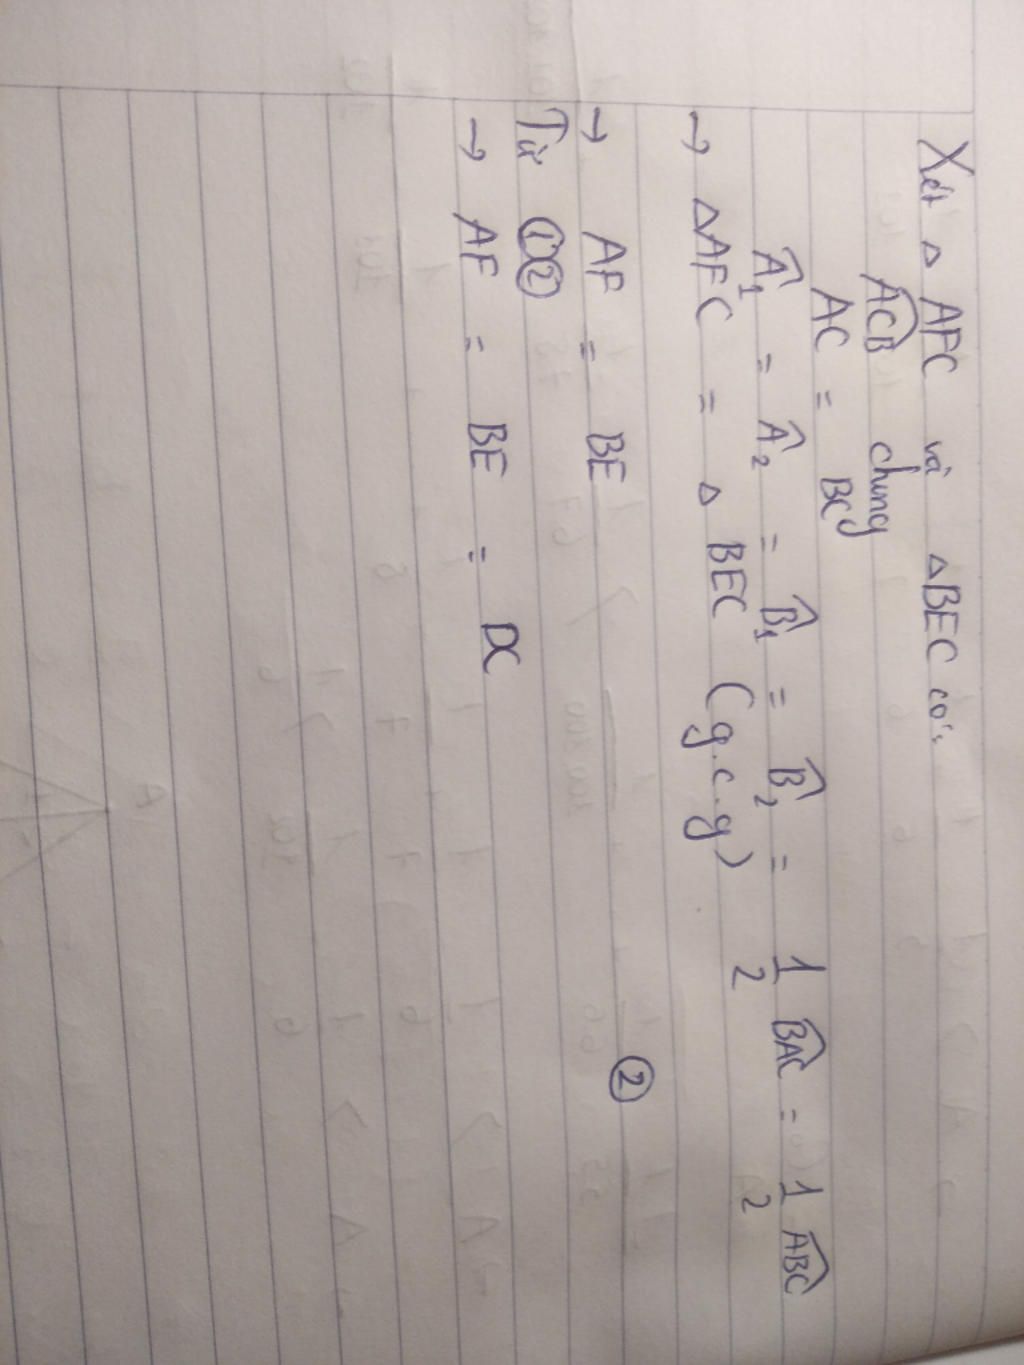 Xét △ AFC và △BEC có:
ACB chung
AC = BC
A₁ = A₂ = B₁ = B₂ = 1/2 BAC = 1/2 ABC
→ △AFC = △ BEC (g.c.g)
→ AF = BE ②
Từ ①②
→ AF = BE = DC